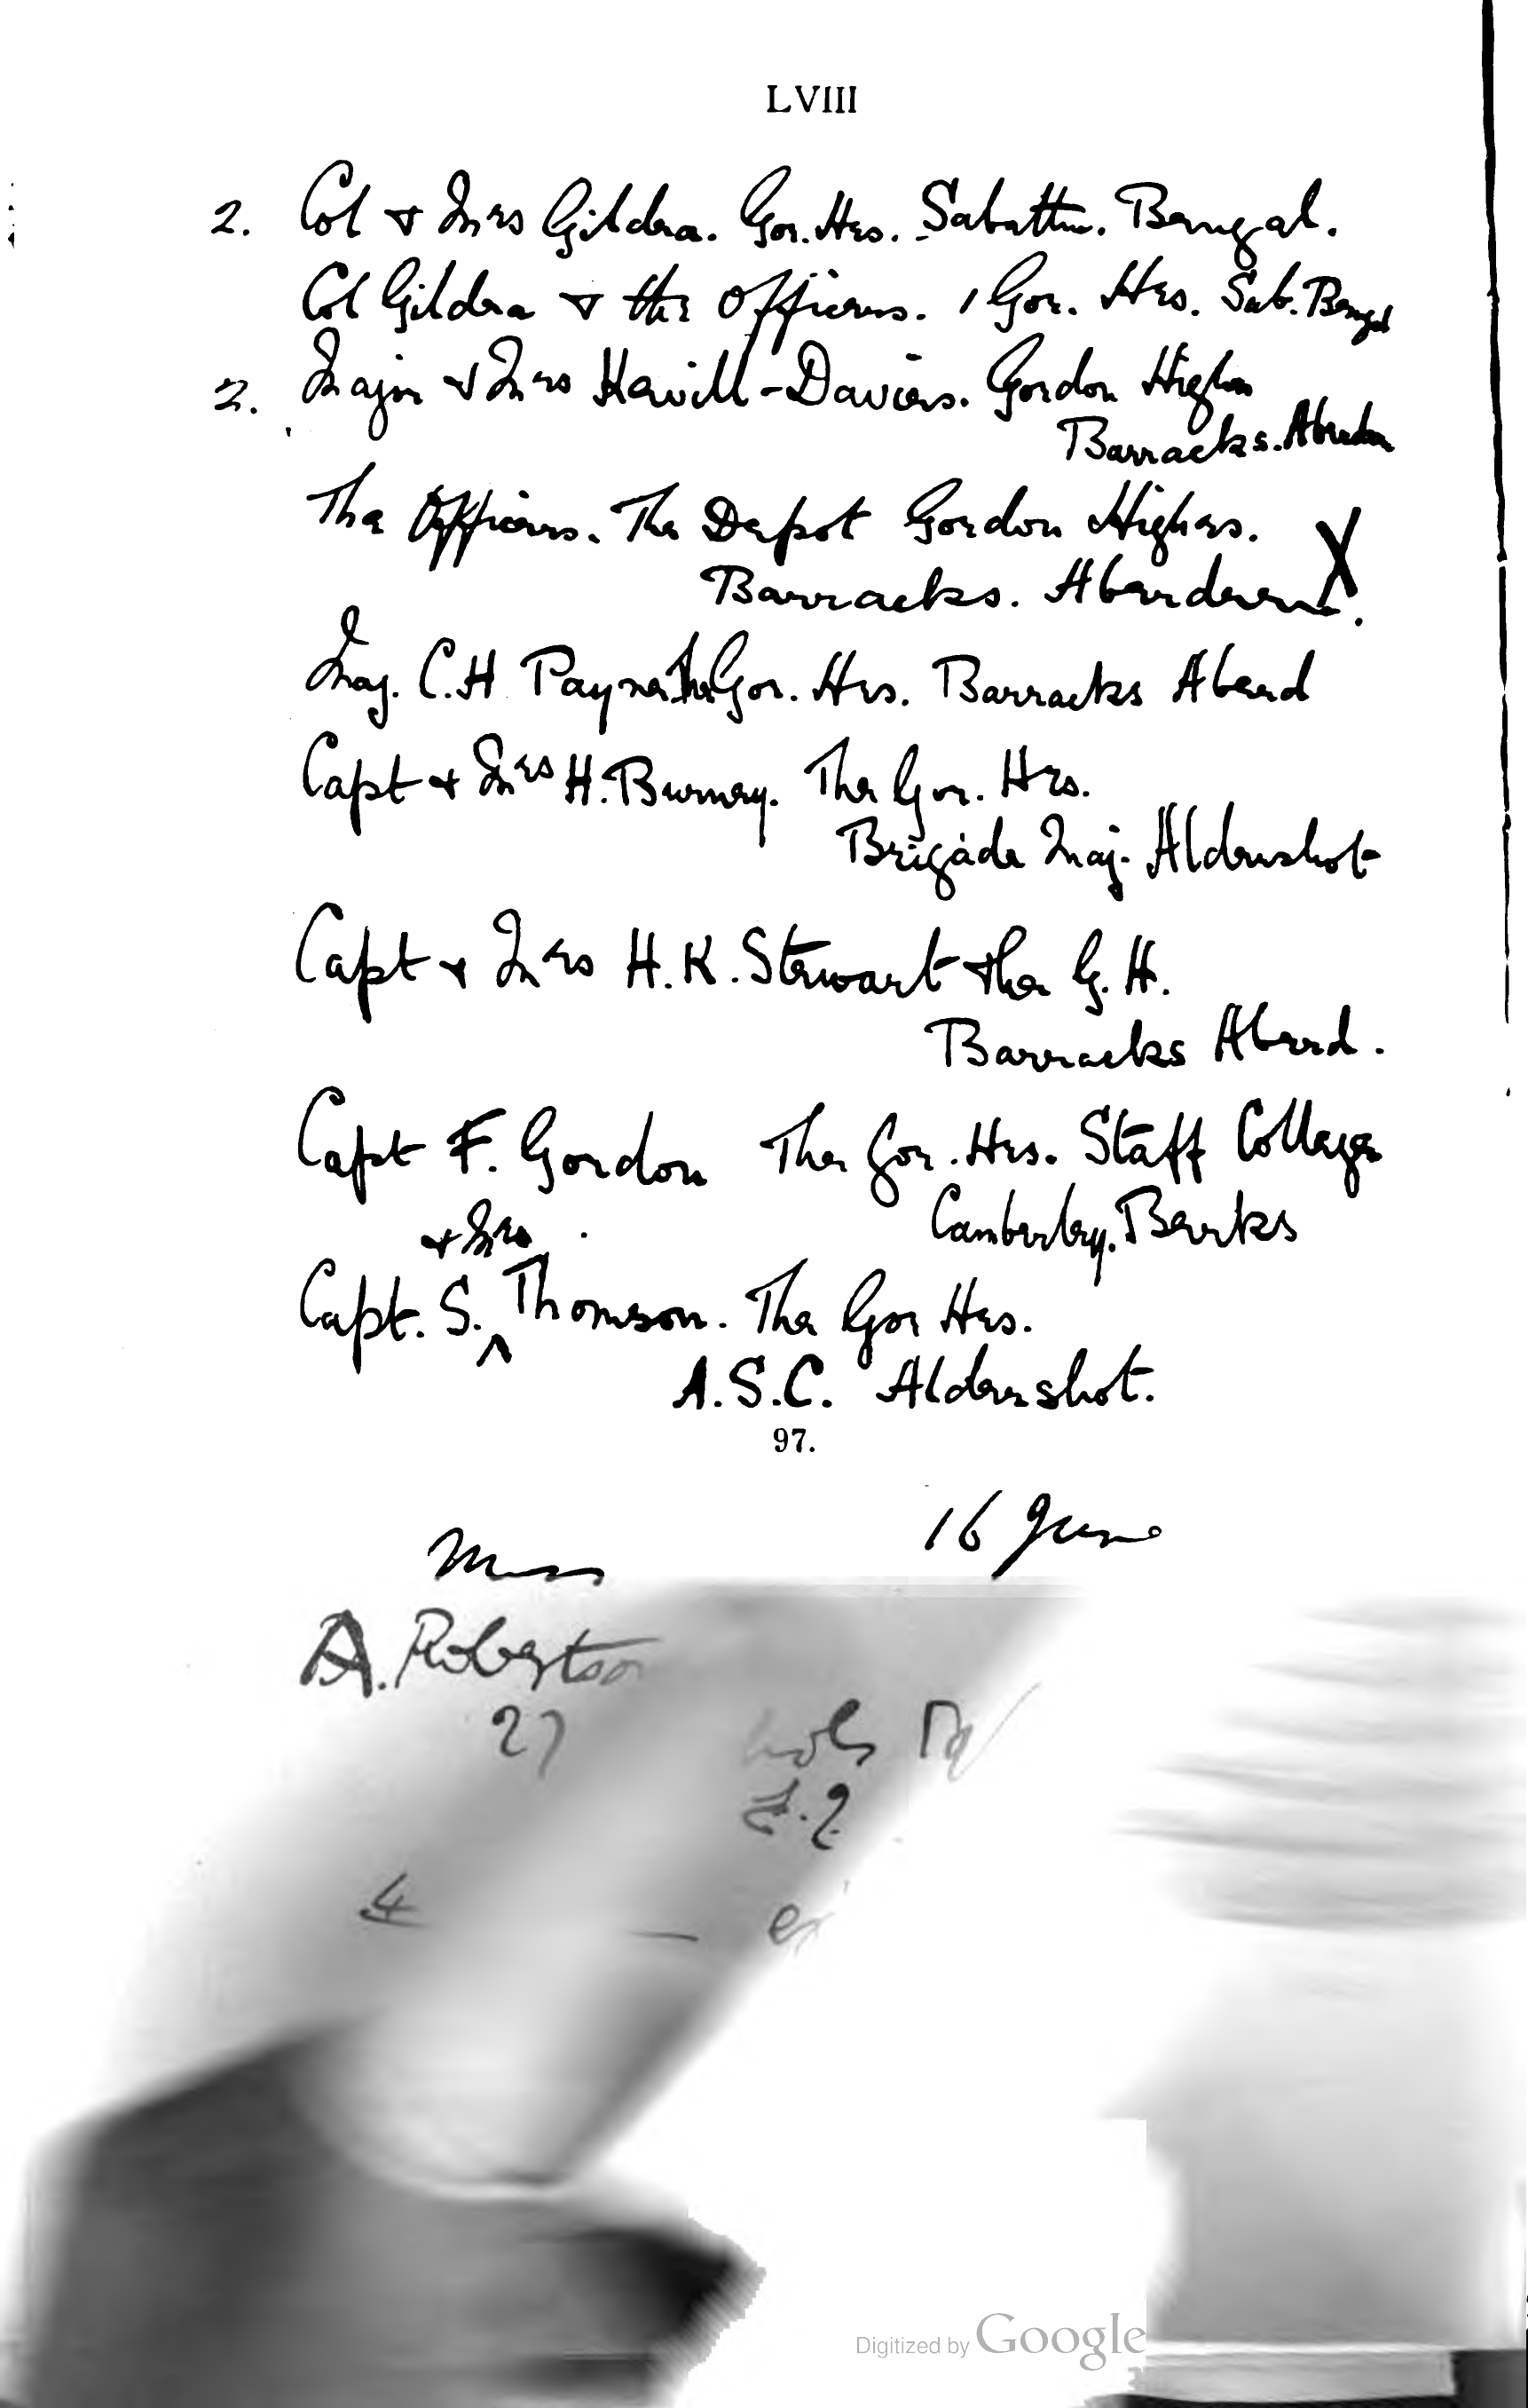 LVIII
2. Col & Mrs Gildea. Gor. Hrs. Sabathu. Bengal.
Col Gildea & the Officers. 1 Gor. Hrs. Sub. Bengal
2. Major & Mrs Havill-Davies. Gordon Highrs
Barracks. Aberdn
The Officers. The Depot Gordon Highrs.
Barracks. Aberdeen. X
Maj. C.H Payne The Gor. Hrs. Barracks Aberd
Capt & Mrs H. Burney. The Gor. Hrs.
Brigade Maj. Aldershot
Capt & Mrs H. K. Stewart the G. H.
Barracks Aberd.
Capt F. Gordon The Gor. Hrs. Staff College
& Mrs Camberley. Berks
Capt. S. ^ Thomson. The Gor Hrs.
A.S.C. Aldershot.
97.
16 June
A. Robertson
27
4
Digitized by Google